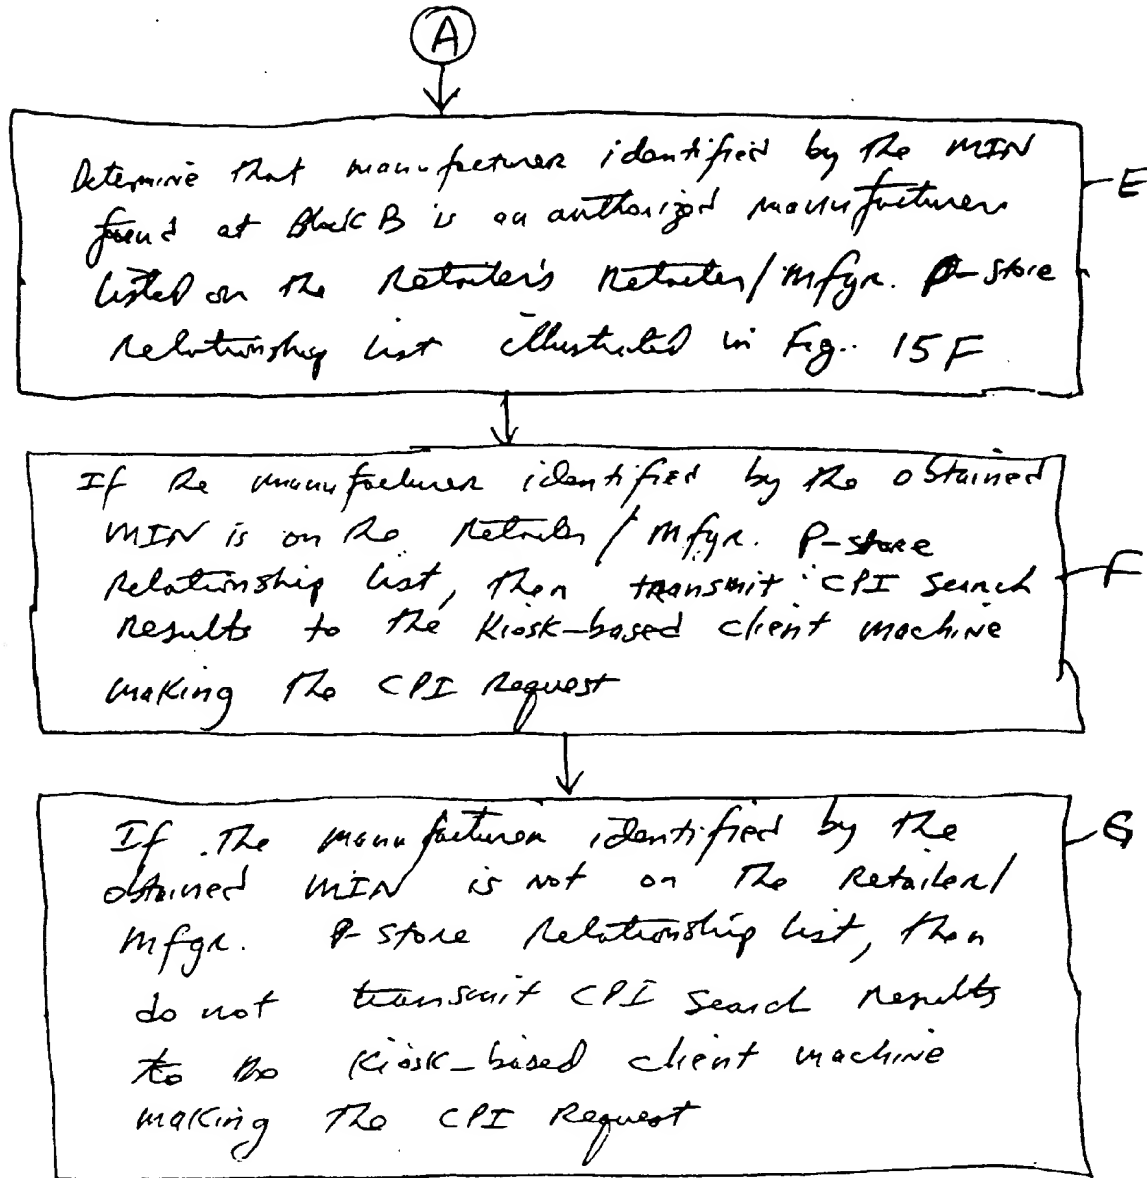 A
Determine that manufacturer identified by the MIN
found at Block B is an authorized manufacturer
listed on the Retailer's Retailer/mfgr. P-store
relationship list illustrated in Fig. 15F
E
If the manufacturer identified by the obtained
MIN is on the Retailer/mfgr. P-store
relationship list, then transmit CPI search
results to the Kiosk-based client machine
making the CPI Request
F
If the manufacturer identified by the
obtained MIN is not on the Retailer/
mfgr. P-store relationship list, then
do not transmit CPI search results
to the Kiosk-based client machine
making the CPI Request
G